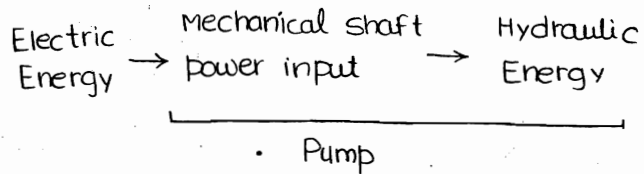 Electric Energy → Mechanical shaft power input → Hydraulic Energy
Pump